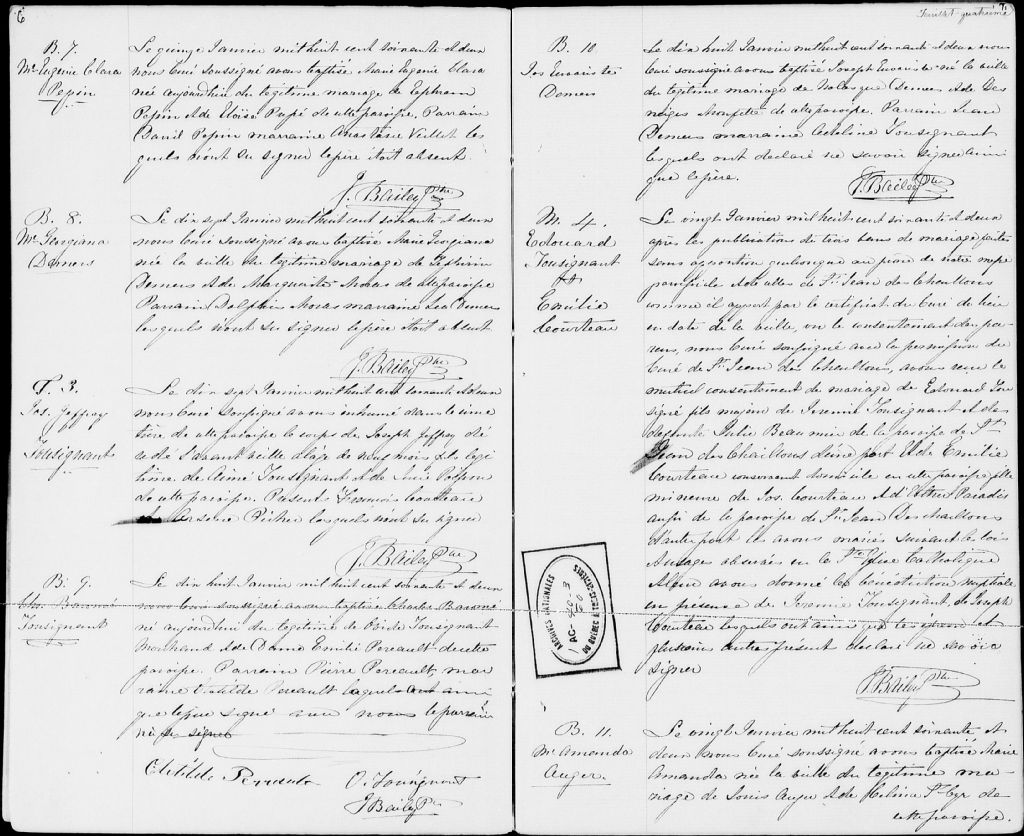 6
B. 7.
Mie Eugenie Clara
Pepin
Le quinze Janvier mil huit cent soixante et deux
nous Curé soussigné avons baptisé Marie Eugenie Clara
née aujourdhui du légitime mariage de Ephrem
Pepin et de Eloïse Papé de cette paroisse. Parrain
David Pepin marraine Anastasie les
quels n'ont su signer le père était absent.
J. Bailey Ptre
B. 8.
Mie Georgiana
Demers
Le dix sept Janvier mil huit cent soixante et deux
nous Curé soussigné avons baptisé Marie Georgiana
née la veille du légitime mariage de Zephirin
Demers et de Marguerite de cette paroisse
Parrain Delphin marraine Lea Demers
lesquels n'ont su signer le père était absent
J. Bailey Ptre
S. 3.
Jos. Jeffrey
Tousignant
Le dix sept Janvier mil huit cent soixante et deux
nous Curé soussigné avons inhumé dans le cime
tière de cette paroisse le corps de Joseph Jeffrey dé
cédé l'avant veille agé de neuf mois fils légi
time de Aimé Tousignant et de
de cette paroisse. Présents
et Arsene Picher lesquels n'ont su signer
J. Bailey Ptre
B. 9.
Chs.
Tousignant
Le dix huit Janvier mil huit cent soixante et deux
nous Curé soussigné avons baptisé Charles
né aujourdhui du légitime de Tousignant
Marchand et de Dame Emilie Pereault de cette
paroisse. Parrain Pierre Pereault, mar
raine Clotilde Perreault lesquels ont ainsi
que le père signé avec nous le parrain
n'a su signer
Clotilde Perrault O. Tousignant
J Bailey Ptre
Feuillet quatrième
7
B. 10
Jos Evariste
Demers
Le dix huit Janvier mil huit cent soixante et deux nous
Curé soussigné avons baptisé Joseph Evariste né la veille
du légitime mariage de Demers et de Des
neiges de cette paroisse. Parrain Jean
Demers marraine Tousignant
lesquels ont declaré ne savoir signer ainsi
que le père.
J. Bailey Ptre
M. 4.
Edouard
Tousignant
&
Emilie
Courteau
Le vingt Janvier mil huit cent soixante et deux
après les publications de trois bans de mariage faites
sans opposition quelconque au prône de notre messe
paroissiale et de celles de St. Jean des Chaillons
comme il appert par le certificat du Curé de lieu
en date de la veille, vu le consentement des pa
rens, nous Curé soussigné avec la permission du
Curé de St. Jean des Chaillons, avons reçu le
mutuel consentement de mariage de Edouard Tou
signt fils majeur de Jeremie Tousignant et de
Julie Beau de la paroisse de St
Jean des Chaillons d'une part et de Emilie
Courteau domicilié en cette paroisse fille
mineure de Jos. Courteau et d' Paradis
aussi de la paroisse de St. Jean Deschaillons
d'autre part les avons mariés suivant les lois
et usages observés en la Ste Eglise Catholique
et leur avons donné la bénédiction nuptiale
en présence de Jeremie Tousignant, de Joseph
Courteau lesquels ont ainsi que les époux et
plusieurs autres présent declaré ne savoir
signer
J. Bailey Ptre
ARCHIVES NATIONALES
AC- 40-3
DU QUÉBEC A TROIS-RIVIERES
B. 11.
Mie Amanda
Auger.
Le vingt Janvier mil huit cent soixante et
deux nous Curé soussigné avons baptisé Marie
Amanda née la veille du légitime ma-
riage de Louis Auger et de Celina St Cyr de
cette paroisse.